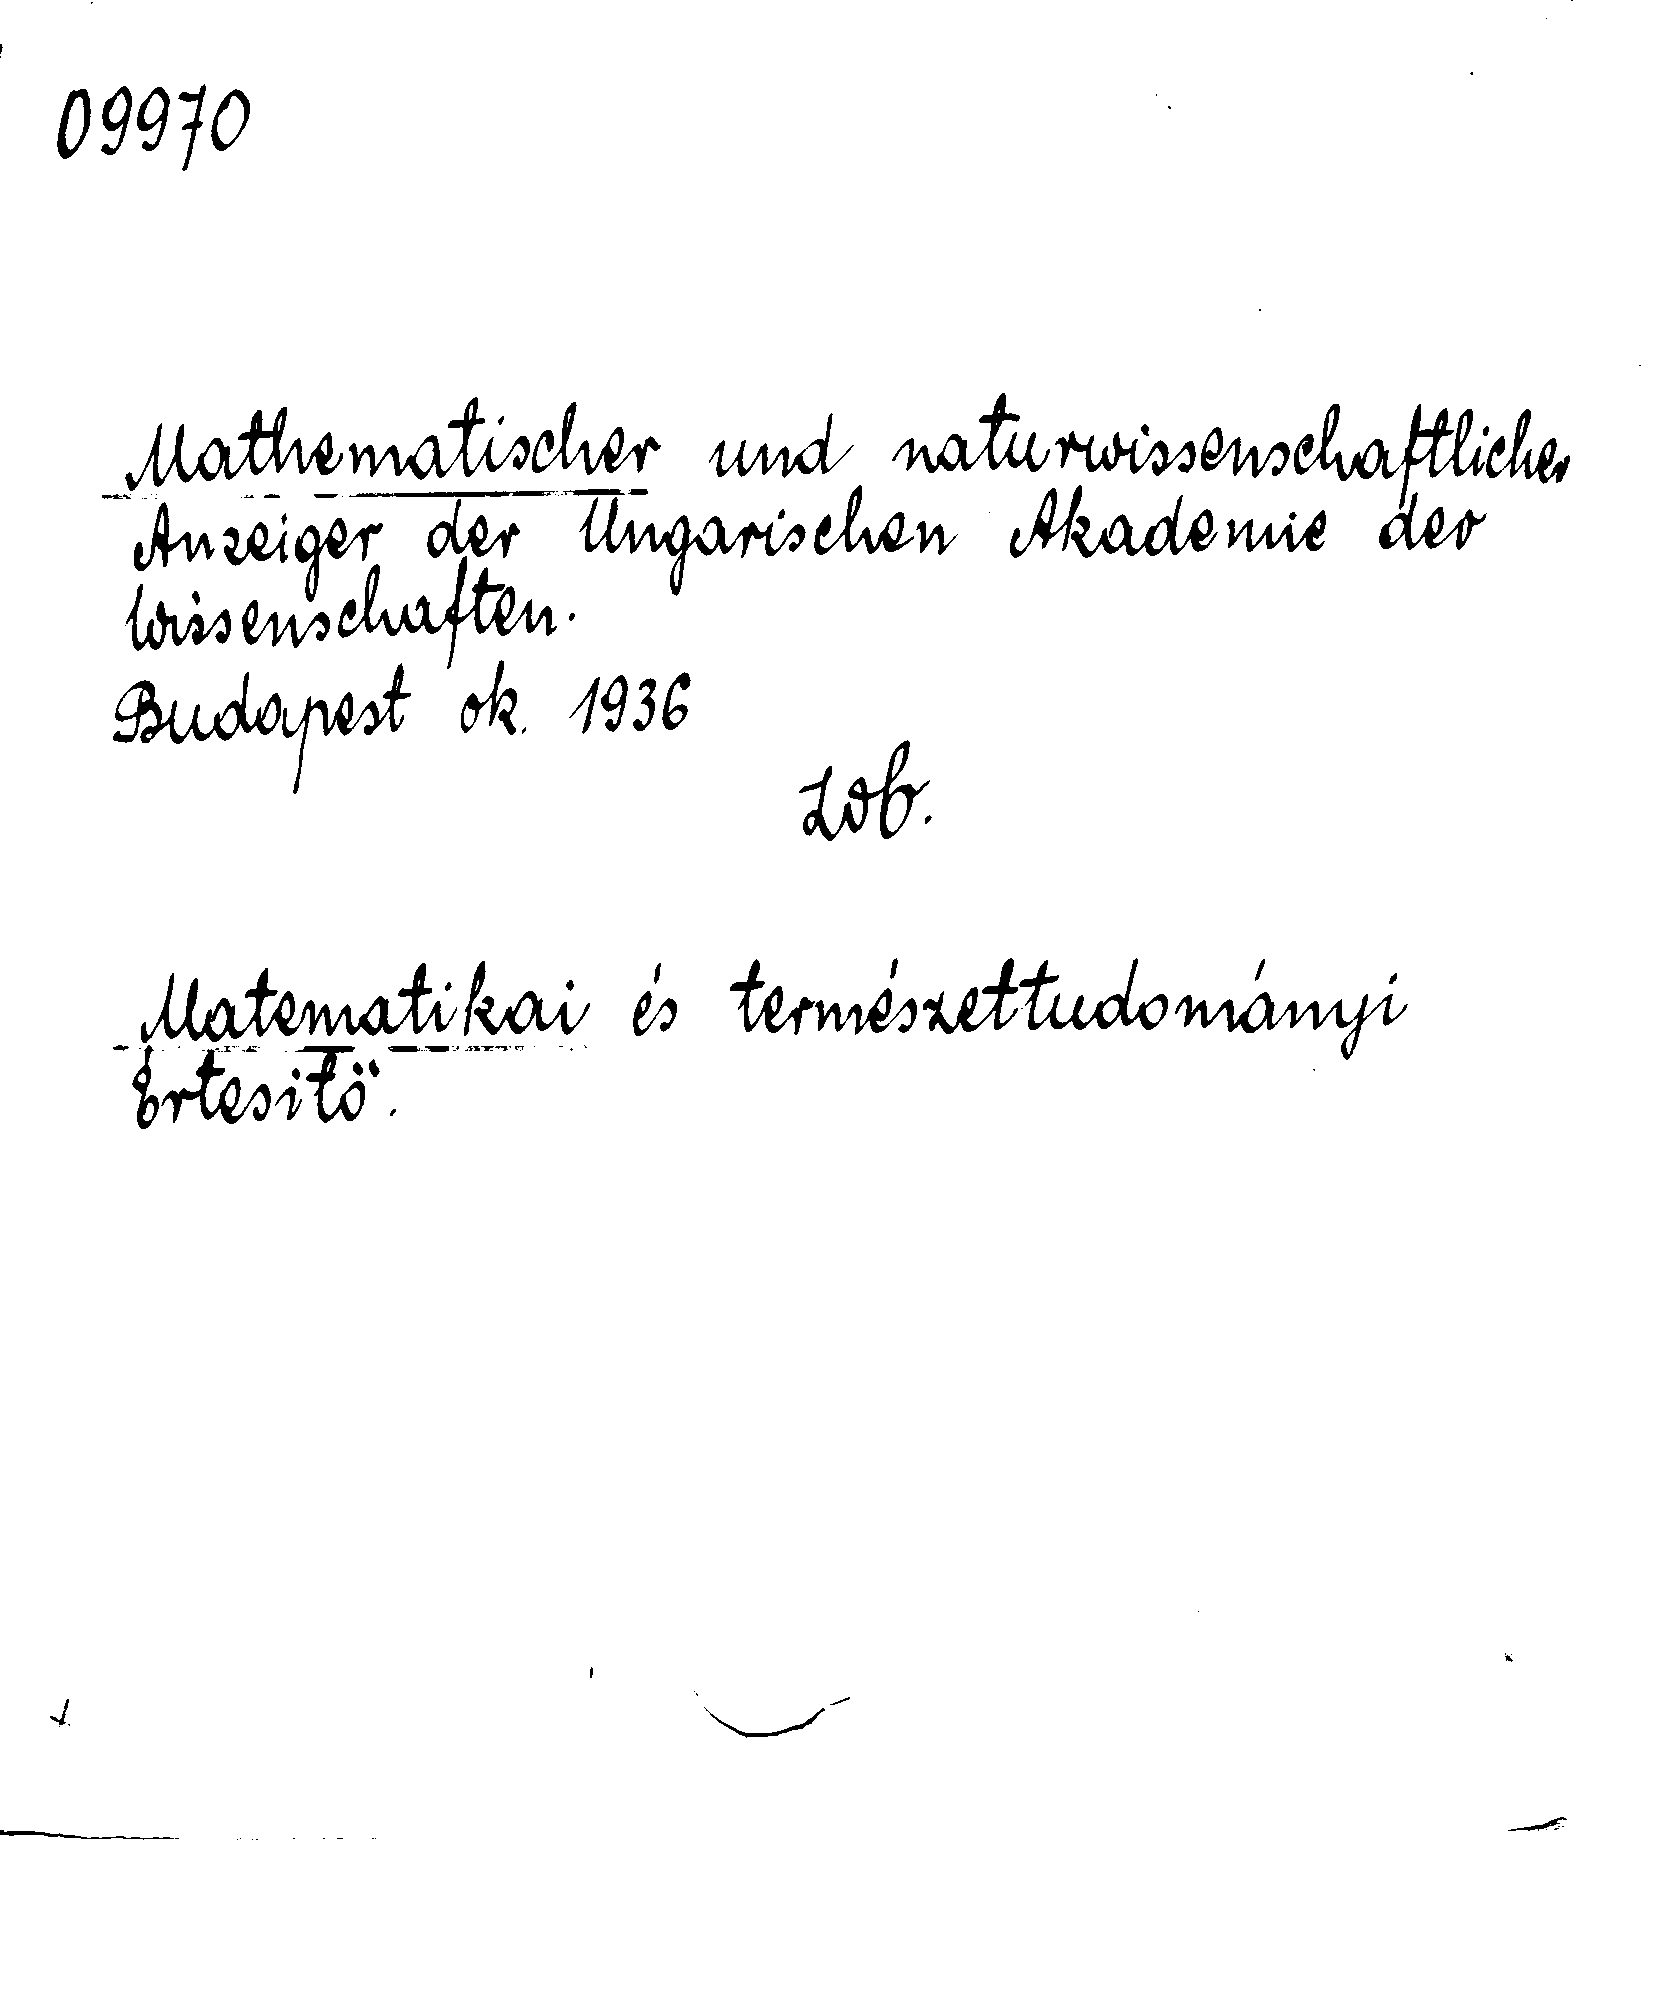 09970
Mathematischer und naturwissenschaftlicher
Anzeiger der Ungarischen Akademie der
Wissenschaften.
Budapest ok. 1936
Matematikai és természettudományi
Értesitö.